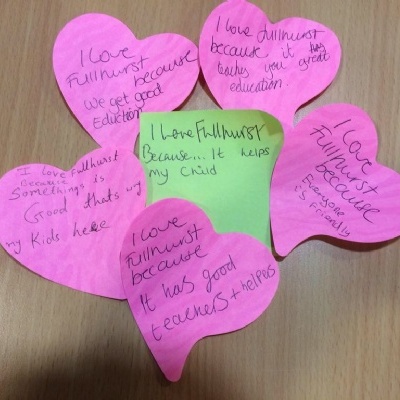 I Love
Fullhurst
because
We get good
Eduction
I love fullhurst
because it has
teaches you great
education.
I Love Fullhurst
Because... It helps
My Child
I love fullhurst
Because
Somethings is
Good thats
my Kids here
I Love
Fullhurst
because
Everyone
is friendly
I Love
Fullhurst
because
It has good
teachers + helpers